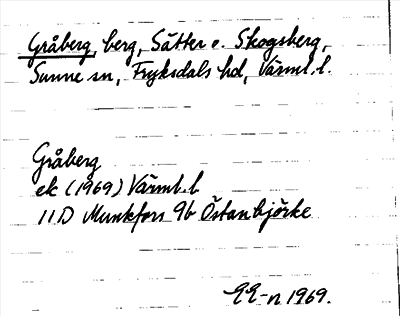 Gråberg, berg, Sätter o. Skogsberg,
Sunne sn, Fryksdals hd, Värml. l.
Gråberg
ek (1969) Värml. l
11D Munkfors 9b Östanbjörke
-n 1969.